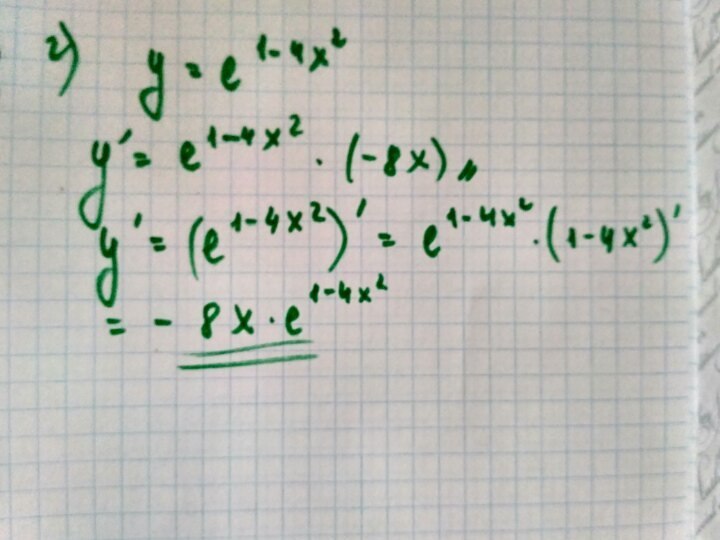 2) y = e^{1-4x^2}
y' = e^{1-4x^2} · (-8x) „
y' = (e^{1-4x^2})' = e^{1-4x^2} · (1-4x^2)'
= - 8x · e^{1-4x^2}